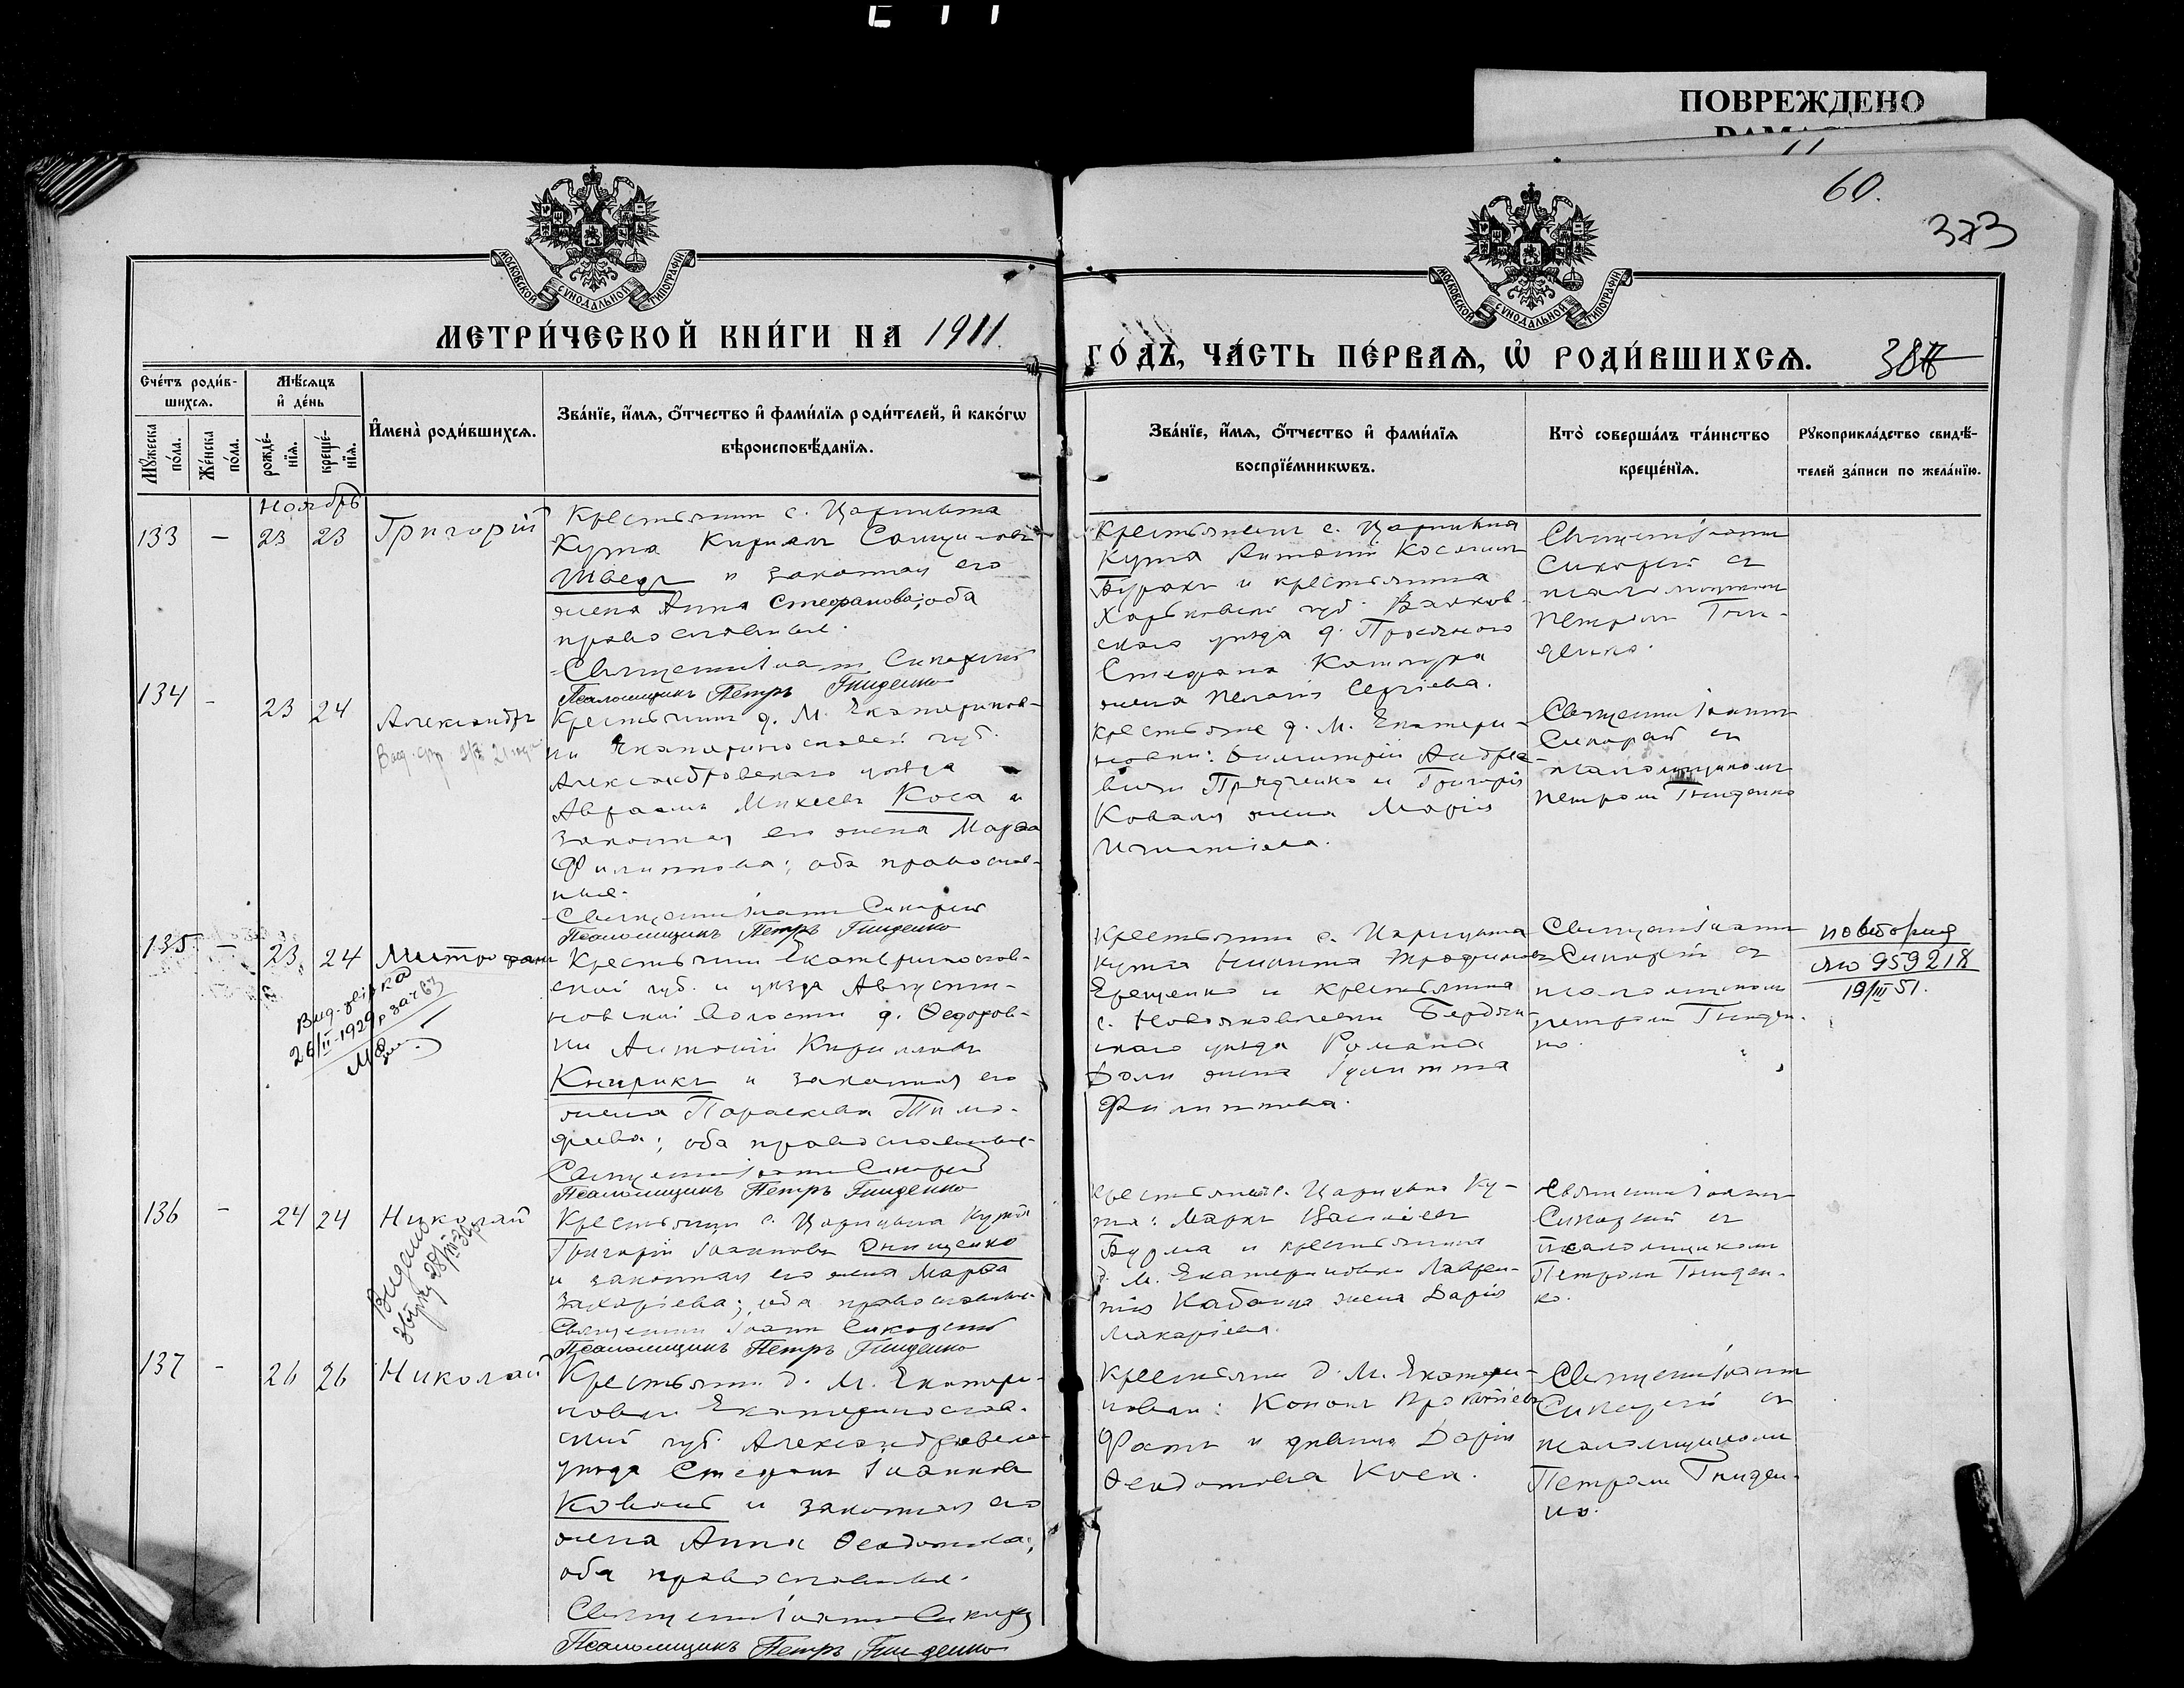 ПОВРЕЖДЕНО
60.
373
МОСКОВСКОЙ СѴНОДАЛЬНОЙ ТИПОГРАФІИ
МОСКОВСКОЙ СѴНОДАЛЬНОЙ ТИПОГРАФІИ
МЕТРИ́ЧЕСКОЙ КНИ́ГИ НА 1911.
ГО́ДЪ, ЧА́СТЬ ПЕ́РВАѦ, Ѡ҆ РОДИ́ВШИХСѦ.
Сче́тъ роди́в-
шихсѧ.
Мѣ́сѧцъ
и҆ де́нь
И҆мена̀ роди́вшихсѧ.
Зва́нїе, и҆́мѧ, ѻ҆́тчество и҆ фами́лїѧ роди́телей, и҆ како́гѡ
вѣроисповѣ́данїѧ.
Мꙋ́жеска
по́ла.
Же́нска
по́ла.
рожде́-
нїѧ.
креще́-
нїѧ.
Зва́нїе, и҆́мѧ, ѻ҆́тчество и҆ фами́лїѧ
воспрїе́мникѡвъ.
Кто̀ соверша́лъ та́инство
креще́нїѧ.
Рꙋкоприкла́дство свидѣ́-
телей за́писи по жела́нїю.
Ноябрь
133 - 23 23 Григорій
Крестьянинъ с. Царицына
Кута Кирилъ
Шведъ и законная его
жена Анна Стефанова; оба
православные.
Священ. Іоаннъ Сикорскій
Псаломщикъ Петръ Гниденко
Крестьянинъ с. Царицына
Кута Антоній Косминъ
Буракъ и крестьянина
Харьковской губ. Валков-
скаго уѣзда д. Просяного
Стефана
жена Пелагія Сергіева.
Священ. Іоаннъ
Сикорскій съ
псаломщикомъ
Петромъ Гни-
денко.
134 - 23 24 Александръ
Крестьянинъ д. М. Екатеринов-
ки Екатеринославской губ.
Александровскаго уѣзда
Авраамъ Михеевъ Коса и
законная его жена Марѳа
Филиппова; оба православ-
ные.
Священ. Іоаннъ Сикорскій
Псаломщикъ Петръ Гниденко
Крестьяне д. М. Екатери-
новки: Димитрій Андре-
евичъ Прядченко и Григорія
Коваля жена Марія
Игнатіева.
Священ. Іоаннъ
Сикорскій съ
псаломщикомъ
Петромъ Гниденко
135. - 23 24 Митрофанъ
Вид. довідка
26/II-1929 р за ч 63
Крестьянинъ Екатеринослав-
ской губ. и уѣзда Августи-
новской волости д. Ѳедоров-
ки Антоній Кирилловъ
Кнырикъ и законная его
жена Параскева Тимо-
феева; оба православные.
Священ. Іоаннъ Сикорскій
Псаломщикъ Петръ Гниденко
Крестьянинъ с. Царицына
Кута Никита Трофимовъ
Ерещенко и крестьянина
с. Новояковлевки Бердян-
скаго уѣзда Романа
жена Іулитта
Филиппова.
Священ. Іоаннъ
Сикорскій съ
псаломщикомъ
Петромъ Гниден-
ко.
повторно
959218
19/III 51.
136 - 24 24 Николай
Видано
Крестьянинъ с. Царицына Кута
Григорій Іоанновъ Онищенко
и законная его жена Марѳа
Захаріева; оба православные
Священникъ Іоаннъ Сикорскій
Псаломщикъ Петръ Гниденко
Крестьяне с. Царицына Ку-
та: Маркъ Василіевъ
Бурма и крестьянина
д. М. Екатериновки Лаврен-
тія Кабанца жена Дарія
Макаріева.
Священникъ Іоаннъ
Сикорскій съ
псаломщикомъ
Петромъ Гниден-
ко.
137 - 26 26 Николай
Крестьянинъ д. М. Екатери-
новки Екатеринослав-
ской губ. Александровскаго
уѣзда Стефанъ Іоанновъ
Коваль и законная его
жена Анна Ѳеодотова;
оба православные.
Священ. Іоаннъ Сикорскій
Псаломщикъ Петръ Гниденко
Крестьяне д. М. Екатери-
новки: Кононъ Прокопіевъ
и дѣвица Дарія
Ѳеодотова Коса.
Священ. Іоаннъ
Сикорскій съ
псаломщикомъ
Петромъ Гниден-
ко.